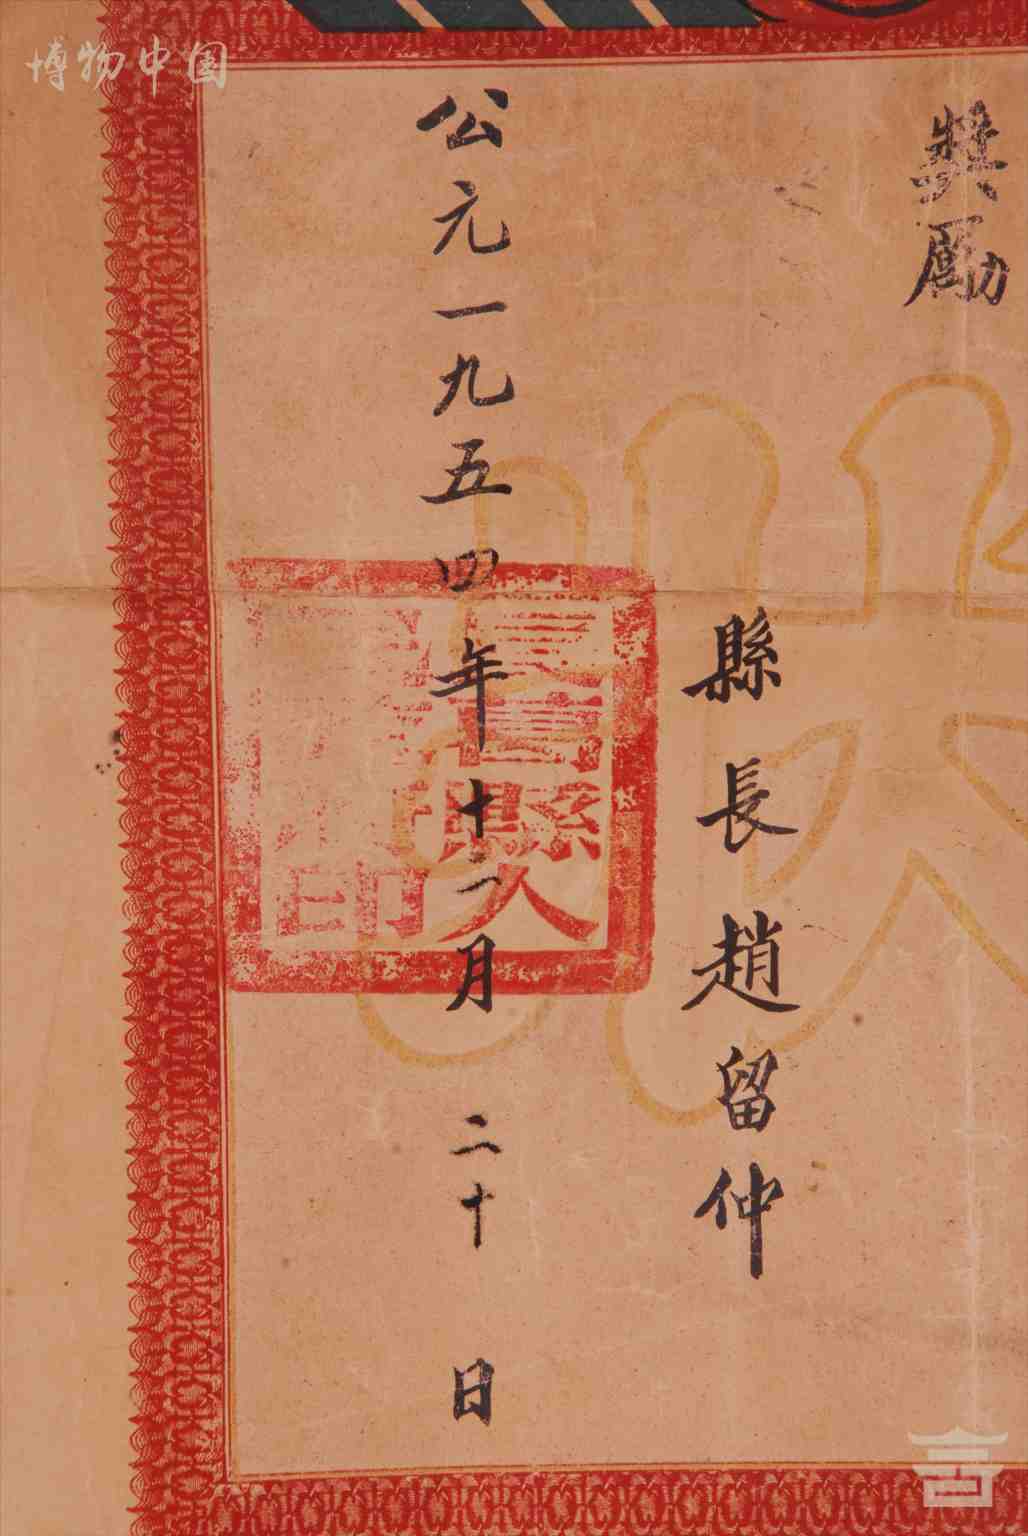 博物中国
獎勵
縣長趙留仲
公元一九五四年十二月二十日
縣人
印